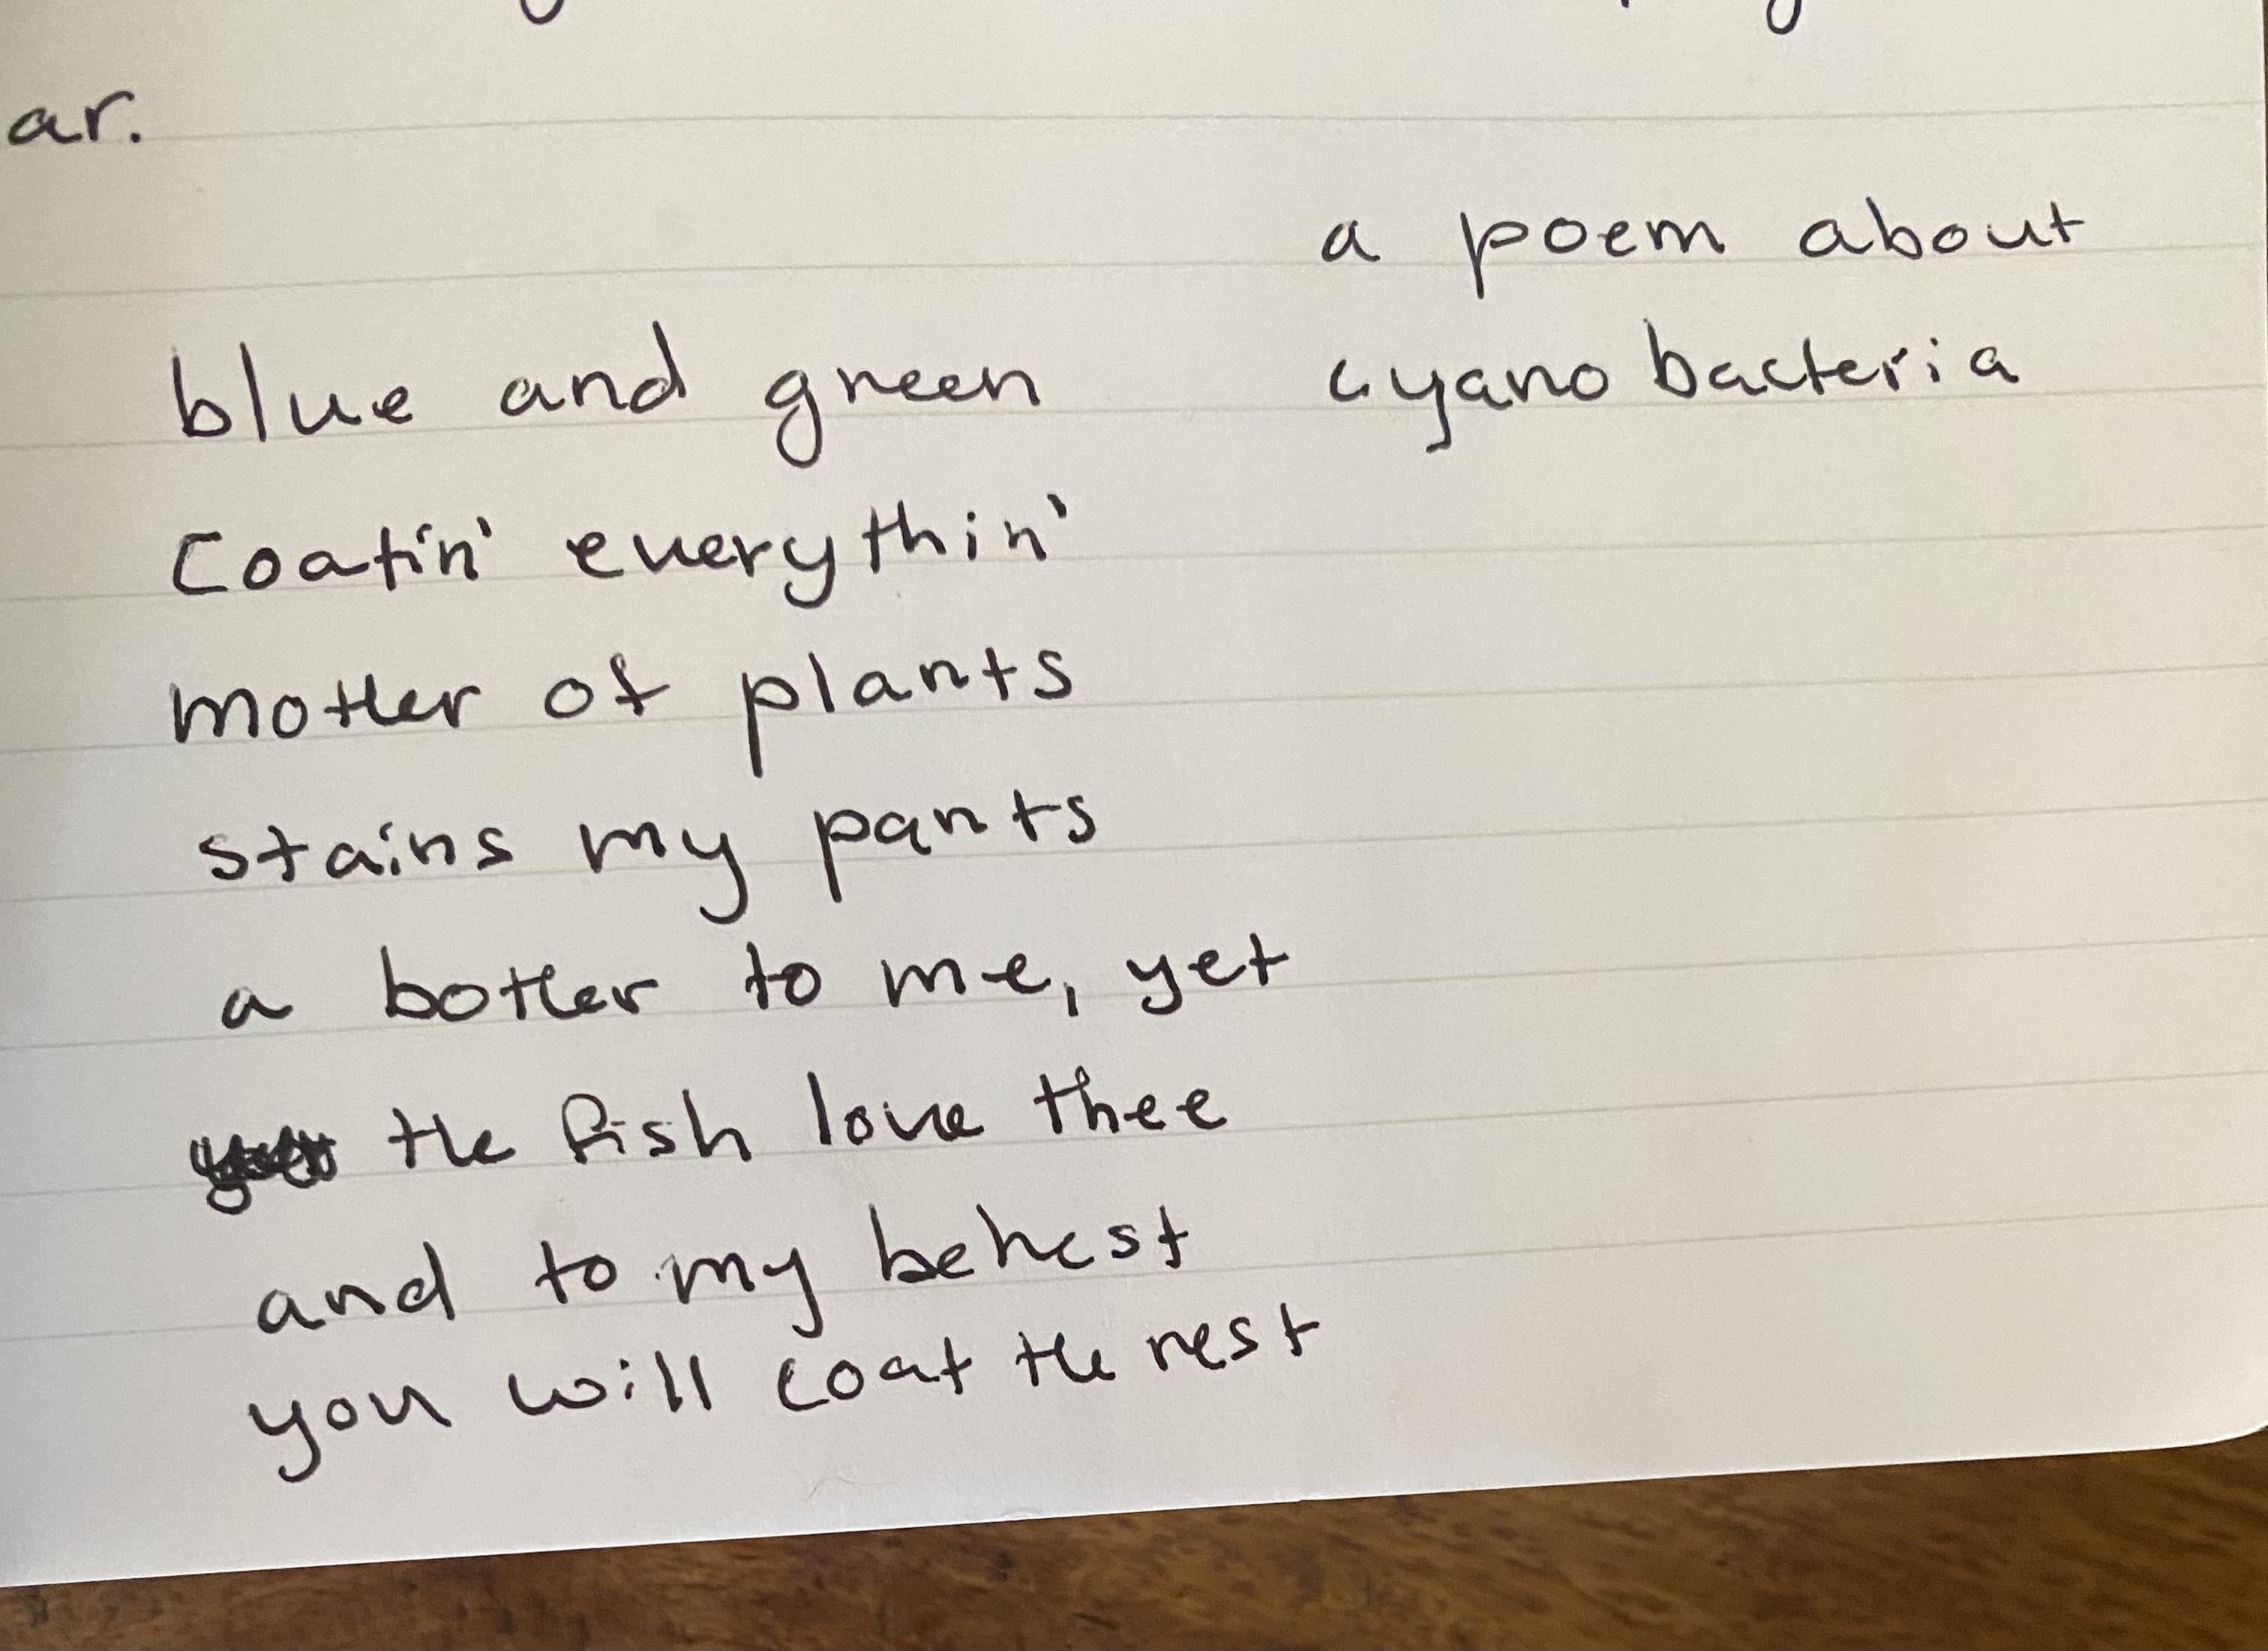 ar.
a poem about
cyano bacteria
blue and green
Coatin' everythin'
mother of plants
stains my pants
a bother to me, yet
the fish love thee
and to my behest
you will coat the rest